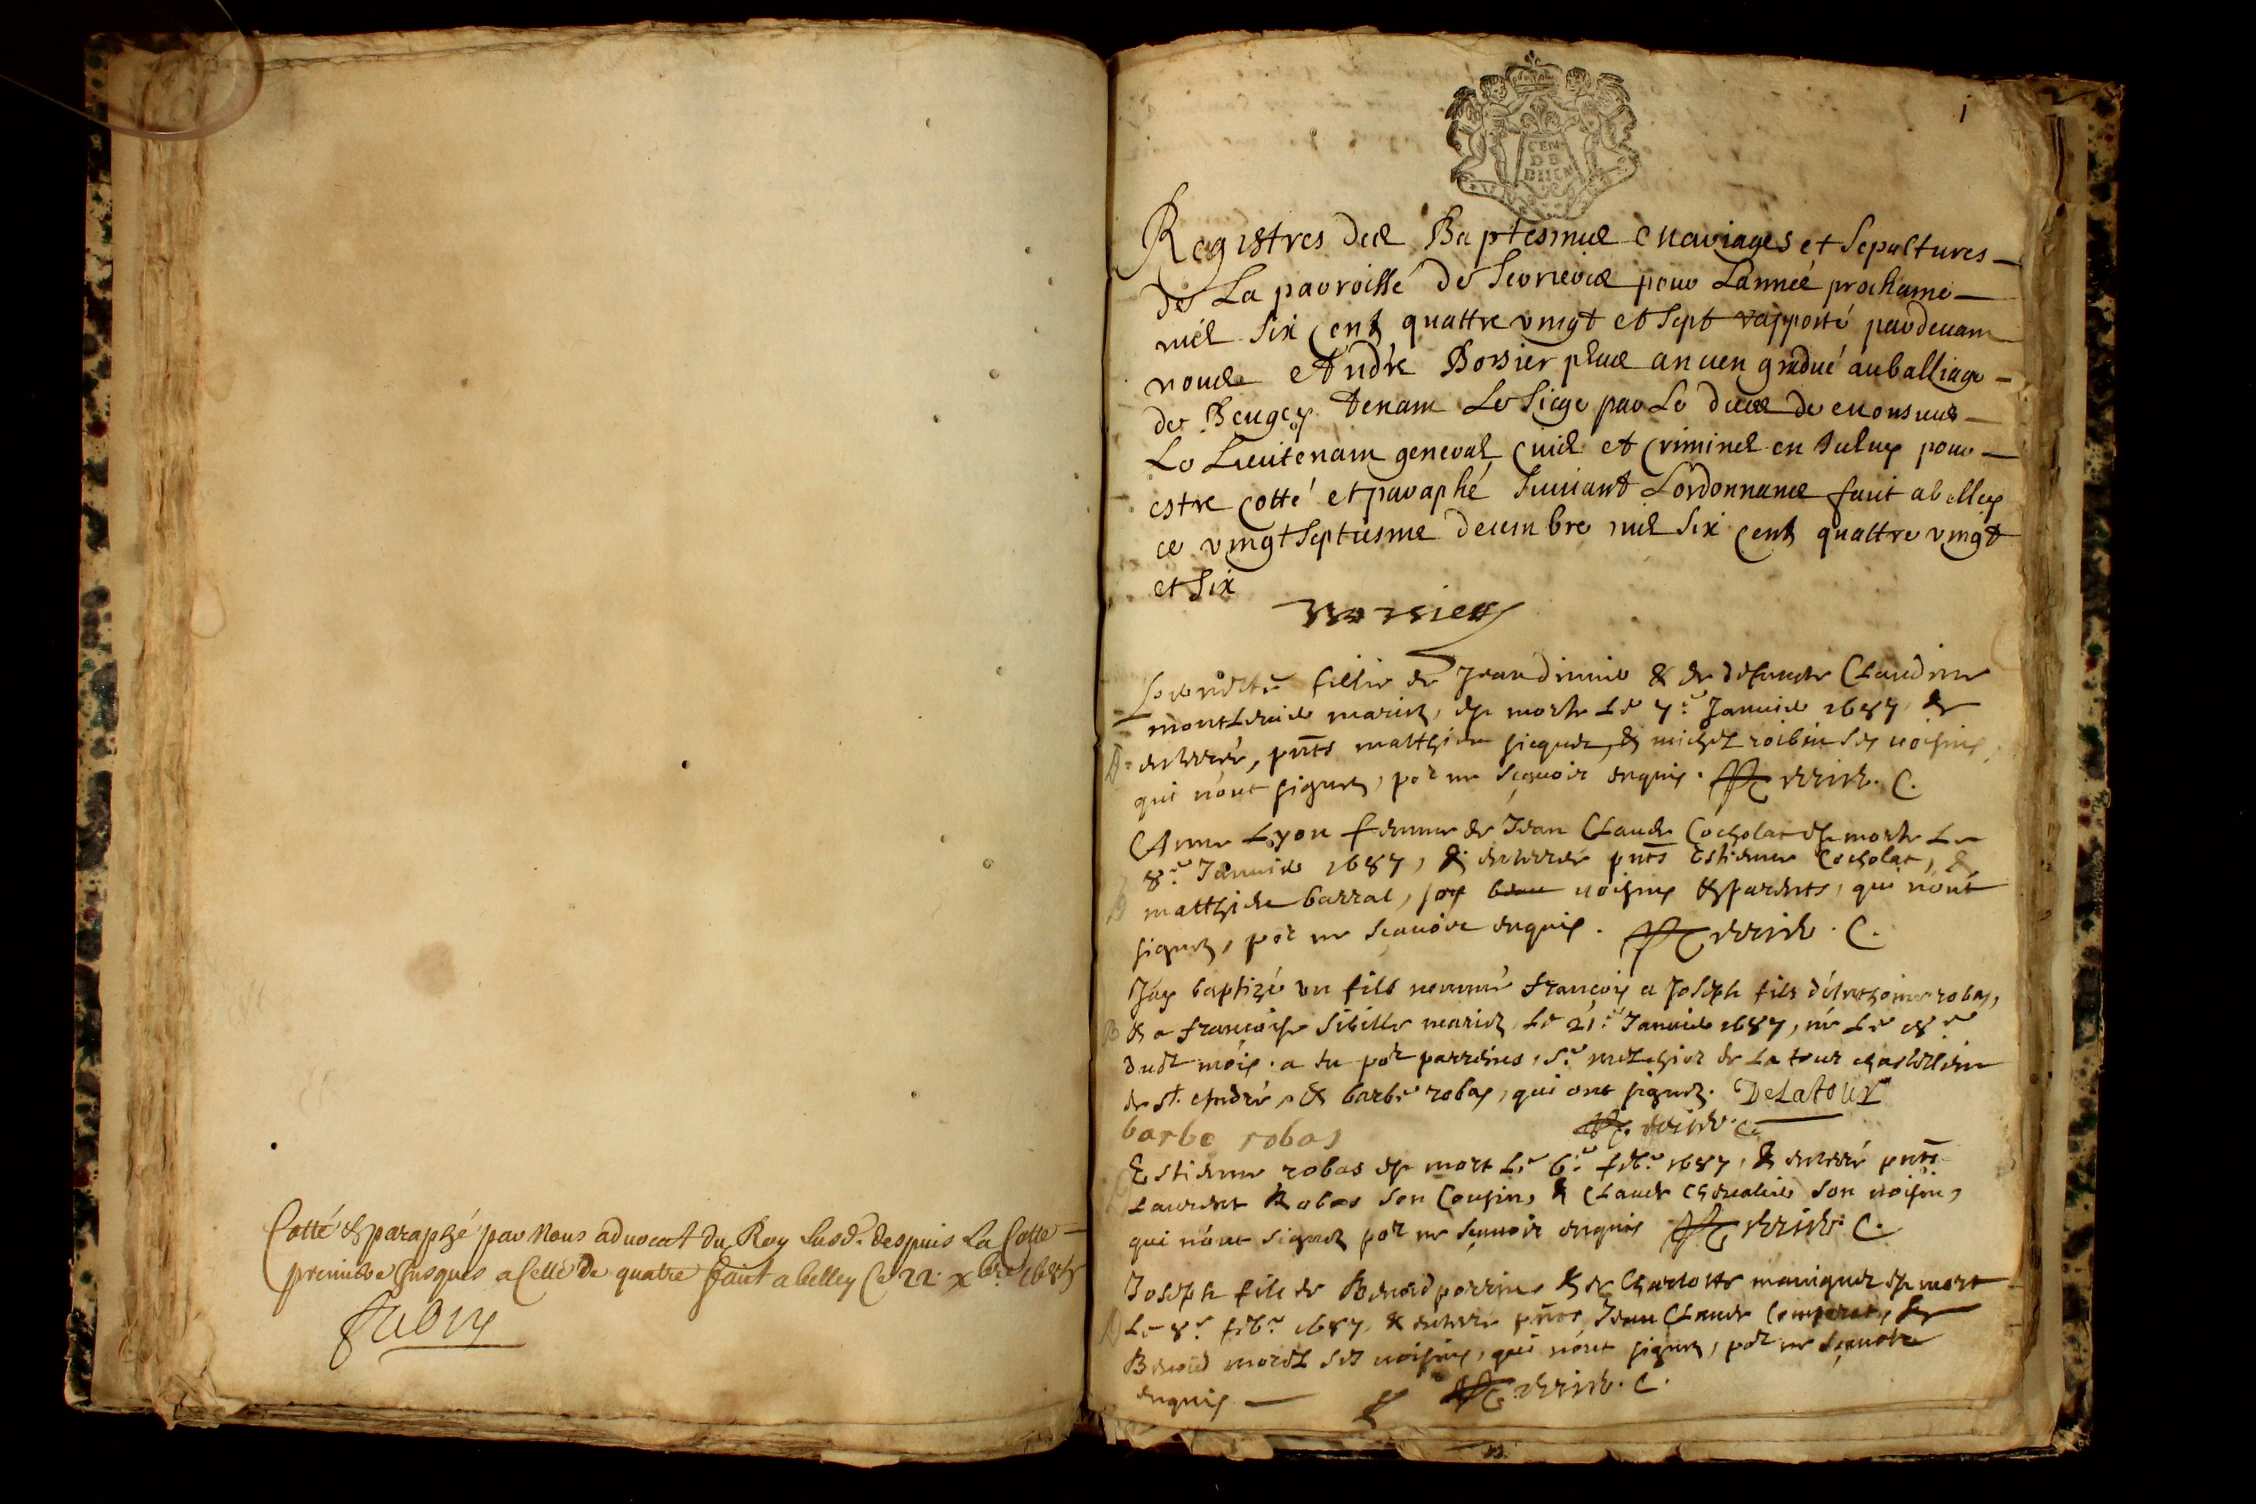 Cotté & paraphé par Nous advocat du Roy susd. despuis La Cotte
premiere jusques a Celle de quatre fait a belley Ce 22. xbre
1
GEN
DE
Registres des Baptesmes Mariages et Sepultures
de La parroisse de pour Lannée prochaine
mil six cent quattre vingt et sept rapporté pardevant
nous André Bossier plus ancien gradué au balliage
de Beugey tenant Le Siege par Le deces de Monsieur
Le Lieutenant general Civil et Criminel en pour
estre Cotté et paraphé suivant Lordonnance fait a belley
ce vingt septiesme decembre mil six cent quattre vingt
et six
fillie de Jean & de defuncte Claudine
mariez, est morte Le 7e Janvier 1687 &
enterrée, pnts matthieu & michel ses voisins,
qui nont signez, por ne scavoir enquis. C.
Anne Lyon femme de Jean Claude Cocholat est morte Le
8e Janvier 1687, & enterrée pnts Estienne Cocholat, &
matthieu barral, voisins & parents, qui nont
signez, por ne scavoir enquis. C.
Jay baptizé un fils nommé françois a Joseph fils robas,
& a françoise Sibille mariez, Le 21e Janvier 1687, né Le
dudt mois. a eu por parreins, Sr melchior de La tour chastellain
de st. André, & barbe robas, qui ont signez. DeLatour
barbe robas C.
Estienne robas est mort Le 6e febr. 1687, & enterré pnts
Laurent Robas son Cousin, & Claude Chevalier son voisin,
qui nont signez por ne scavoir enquis C.
Joseph fils de Benoid perrin & de Charlotte maniguet est mort
Le 8e febr. 1687, & enterré pnts Jean Claude &
Benoid morel ses voisins, qui nont signez, por ne scavoir
enquis C.